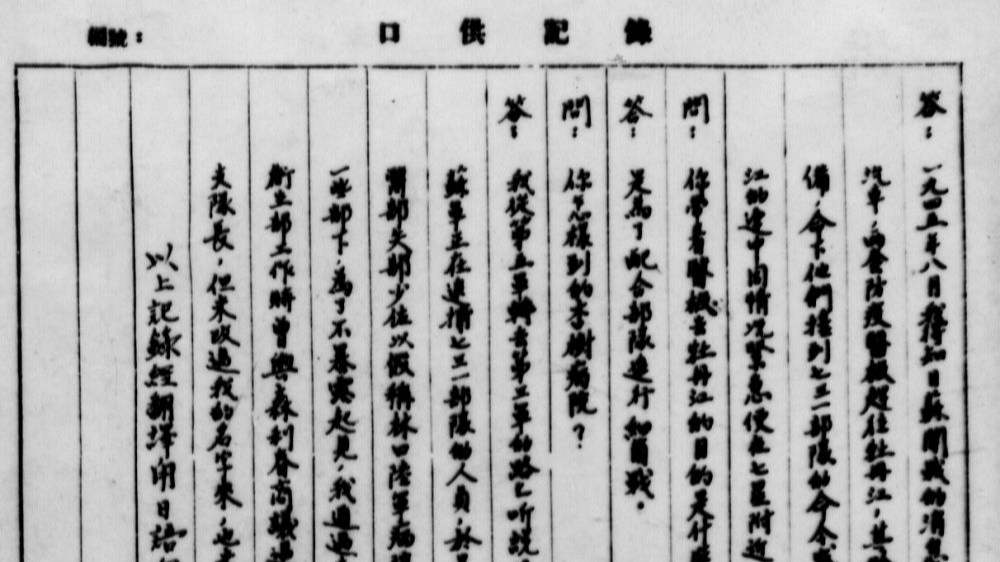 編號：
口供記錄
答：一九四五年八月獲知日蘇開戰的消息
汽車，両臺防疫醫療趕往牡丹江，
備，命下他們接到七三一部隊的命令
江的途中因情況緊急便在七星附近
問：你帶着醫機去牡丹江的目的是什
答：是為了配合部隊進行細菌戰。
問：你怎樣到的李樹病院？
答：我從第五軍轉去第三軍的路上听説，
蘇軍正在追捕七三一部隊的人員，於是
醫部失部少佐以假稱林口陸軍病院
一些部下，為了不暴露起見，我通過
衛生部工作時曾與森利春商議過
支隊長，但未改過我的名字來，也
以上記錄經翻譯用日語